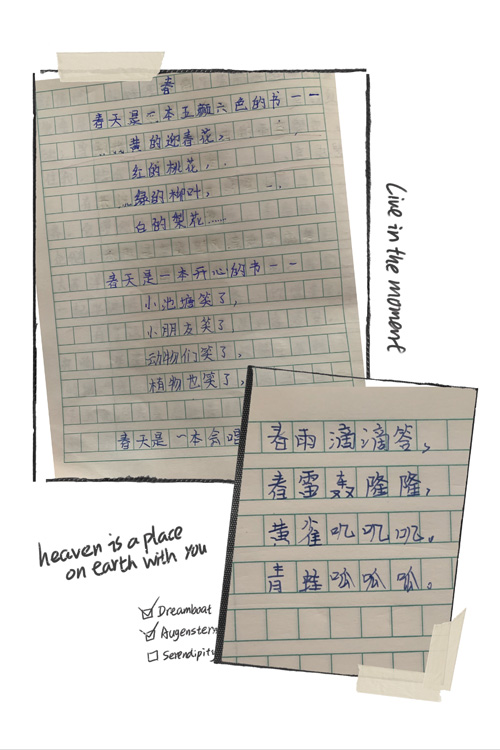 春
春天是一本五颜六色的书——
黄的迎春花,
红的桃花,
绿的柳叶,
白的梨花……
春天是一本开心的书——
小池塘笑了,
小朋友笑了
动物们笑了,
植物也笑了,
春天是一本会
春雨滴滴答,
春雷轰隆隆,
黄雀叽叽叽。
青蛙呱呱呱。
Live in the moment
heaven is a place
on earth with you
Dreamboat
Augenstern
Serendipity